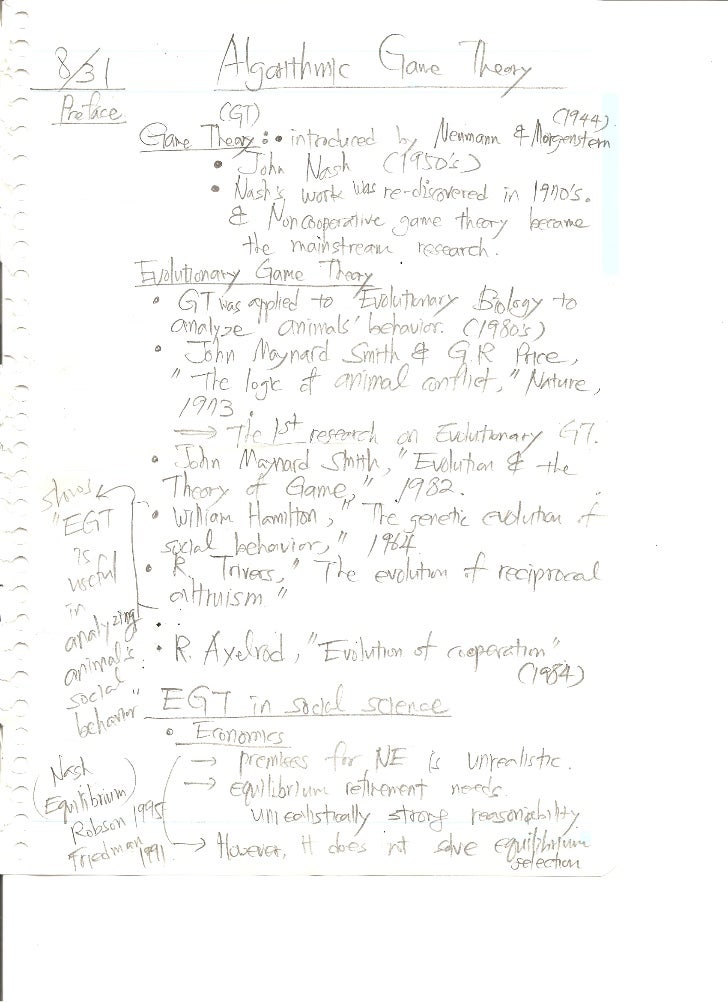 8/31
Algorithmic Game Theory
Preface
(GT)
(1944).
Game Theory: • introduced by Neumann & Morgenstern
• John Nash (1950's)
• Nash's work was re-discovered in 1970's.
& Noncooperative game theory became
the mainstream research.
Evolutionary Game Theory
• GT was applied to "Evolutionary Biology to
analyze" animals' behavior. (1980's)
• John Maynard Smith & G.R Price,
"The logic of animal conflict," Nature,
1973.
⇒ The 1st research on Evolutionary GT.
• John Maynard Smith, "Evolution & the
Theory of Game," 1982.
• William Hamilton, "The genetic evolution of
social behavior," 1964
• R. Trivers, "The evolution of reciprocal
altruism"
• R. Axelrod, "Evolution of cooperation"
(1984)
shows
"EGT
is
useful
in
analyzing
animal's
social
behavior"
EGT in social science
• Economics
→ premises for NE is unrealistic.
→ equilibrium refinement needs
unrealistically strong reasonability
→ However, it does nt solve equilibrium
selection
(Nash
Equilibrium)
Robson 1995
Friedman 1991